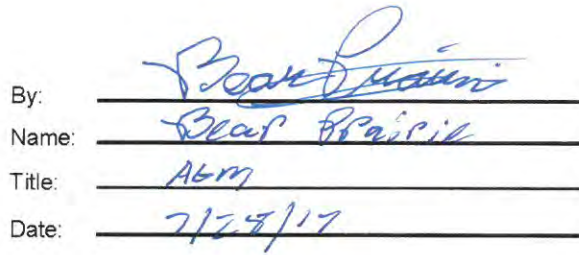 By: Bear Prairie
Name: Bear Prairie
Title: AGM
Date: 7/28/17